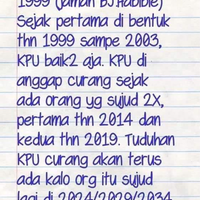 1999 (jaman BJ.Habibie)
Sejak pertama di bentuk
thn 1999 sampe 2003,
KPU baik2 aja. KPU di
anggap curang sejak
ada orang yg sujud 2X,
pertama thn 2014 dan
kedua thn 2019. Tuduhan
KPU curang akan terus
ada kalo org itu sujud
lagi di 2024/2029/2034